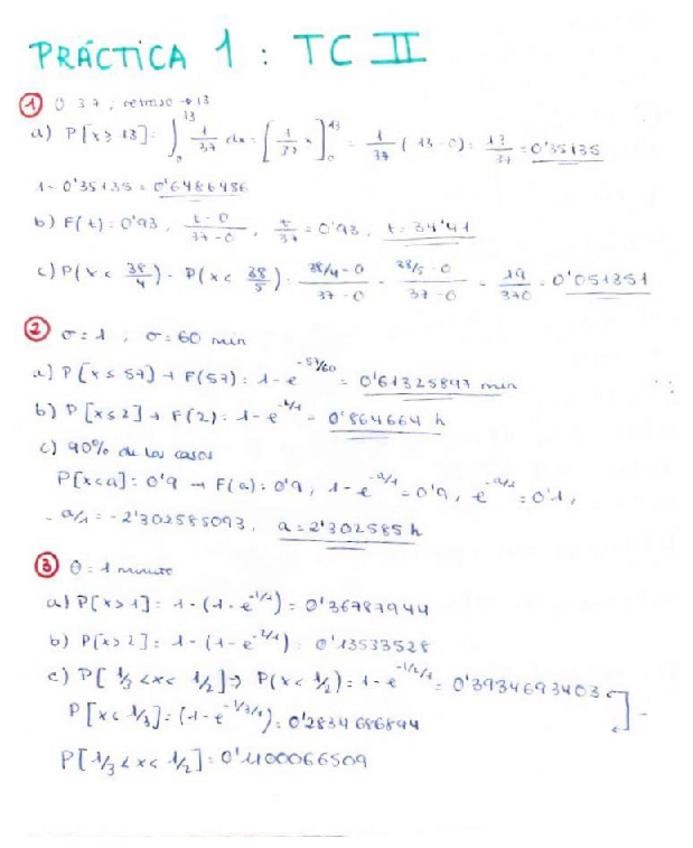 PRÁCTICA 1 : TC II
① 0 37 ; retraso → 13
a) P[x≥13] = ∫₀¹³ 1/37 dx = [1/37 x]₀¹³ = 1/37 (13-0) = 13/37 = 0'35135
1 - 0'35135 = 0'6486486
b) F(t) = 0'93, t-0/37-0, t/37 = 0'93, t = 34'41
c) P(x < 38/4) - P(x < 38/5) = 38/4-0/37-0 - 38/5-0/37-0 = 19/370 = 0'051351
② σ = 1 ; σ = 60 min
a) P[x≤57] → F(57) = 1-e^-57/60 = 0'61325897 min
b) P[x≤2] → F(2) = 1-e^-2/1 = 0'864664 h
c) 90% de los casos
P[x<a] = 0'9 → F(a) = 0'9, 1-e^-a/1 = 0'9, e^-a/1 = 0'1,
-a/1 = -2'302585093, a = 2'302585 h
③ θ = 1 minuto
a) P[x>1] = 1-(1-e^-1/1) = 0'36787944
b) P[x>2] = 1-(1-e^-2/1) = 0'13533528
c) P[1/3 <x< 1/2] → P(x< 1/2) = 1-e^-1/2/1 = 0'3934693403
P[x< 1/3] = (1-e^-1/3/1) = 0'2834686894
P[1/3 <x< 1/2] = 0'1100066509